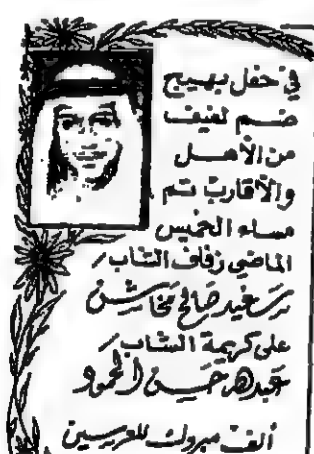 في حفل بهيج
ضم لفيف
من الأهل
والأقارب تم
مساء الخميس
الماضي زفاف الشاب/
سعيد صالح مخاشن
على كريمة الشاب/
عبدالله حسن المحمود
ألف مبروك للعروسين